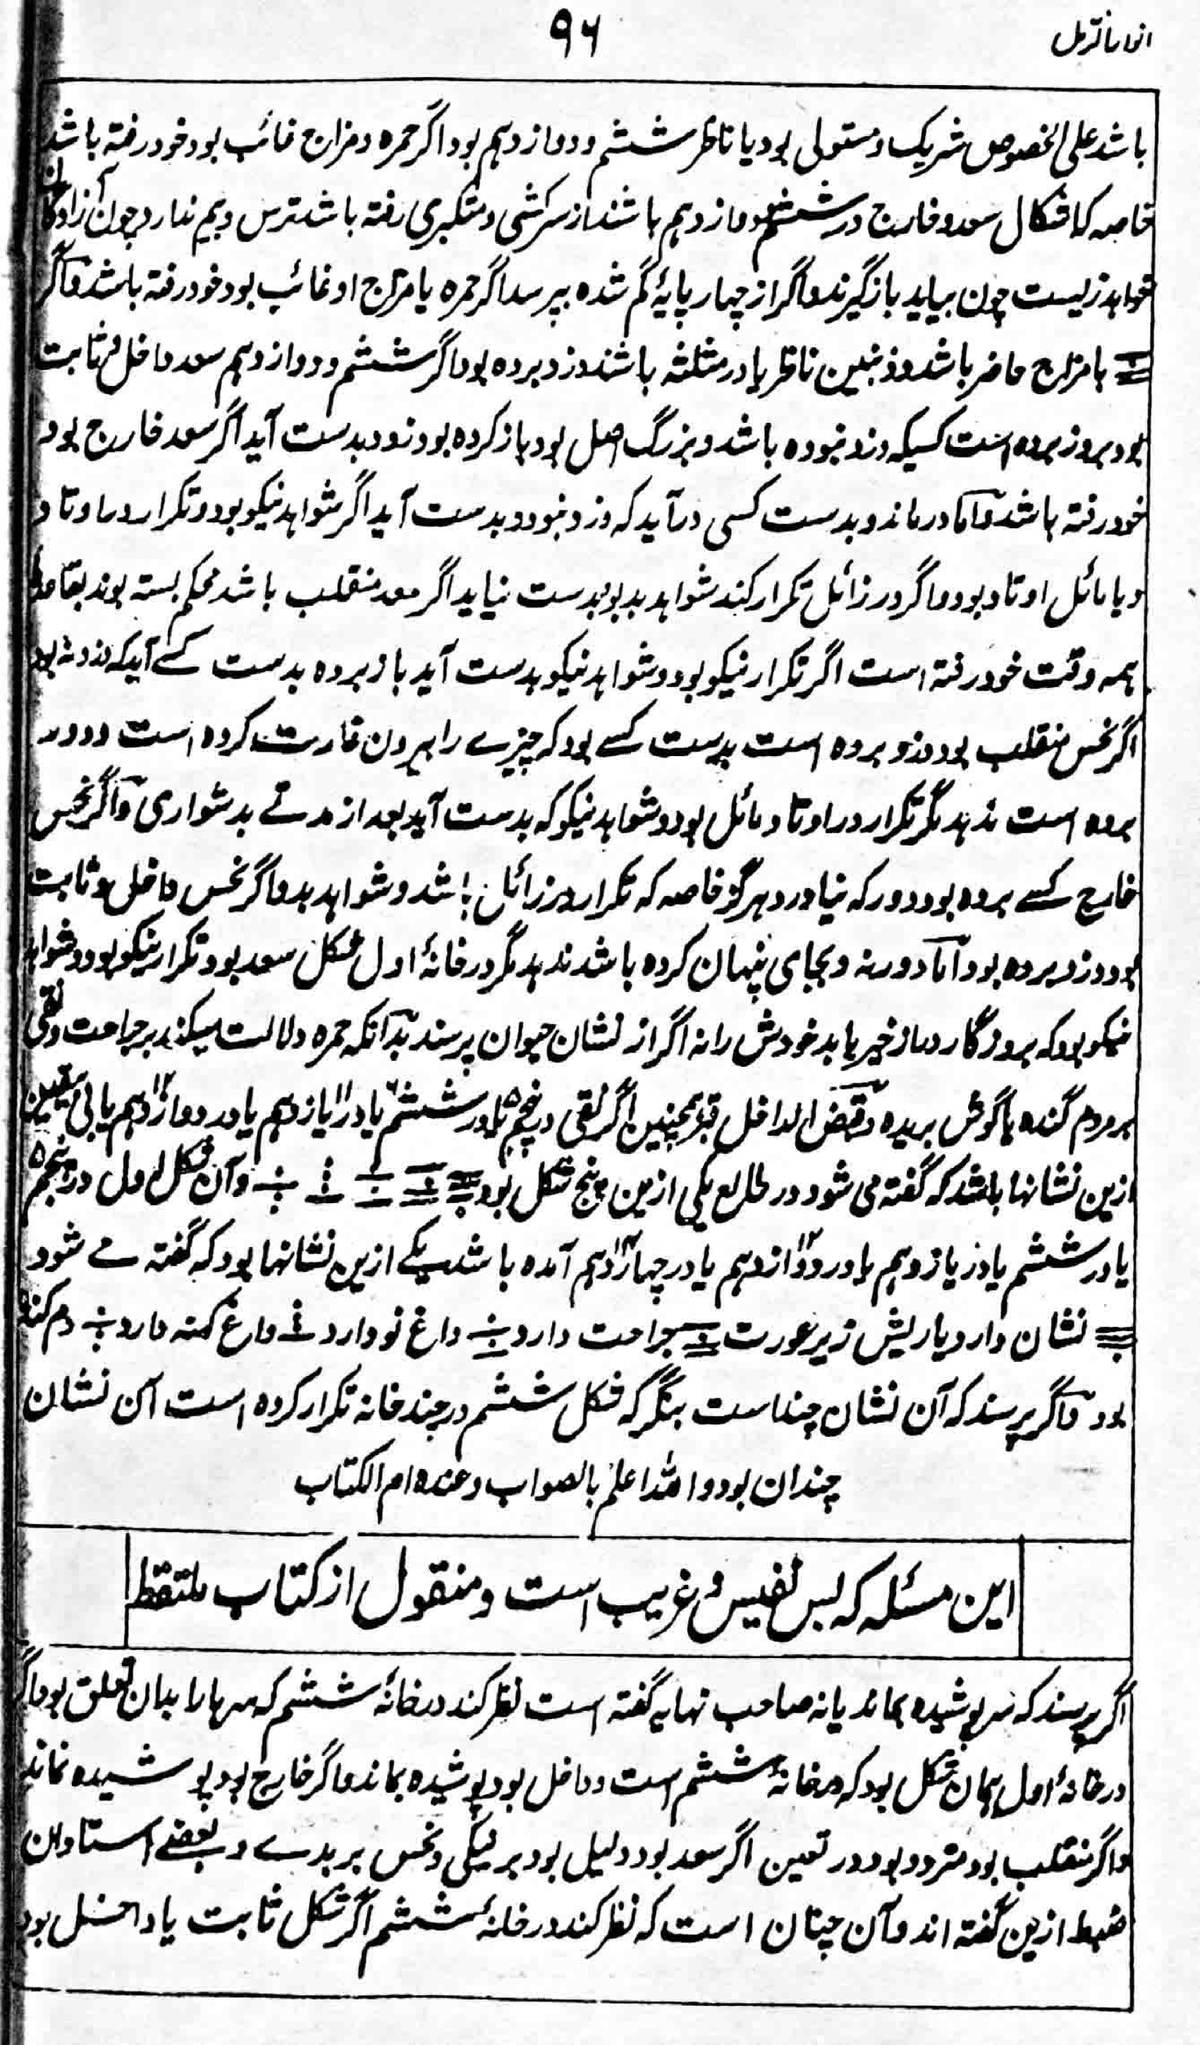 ۹۶
باشد علی الخصوص شریک و مستولی بود یا ناظر ششم و دوازدهم بود اگر حمره و مزاج غائب بود خود رفته باشد
خاصه که اشکال سعد و خارج در ششم و دوازدهم باشند از سرکشی و متکبری رفته باشد ترس و بیم ندارد چون آزادگان
خواهد زیست چون بیاید باز گیرند و اگر از چهار پایهٔ گم شده بپرسد اگر حمره یا مزاج او غائب بود خود رفته باشد و اگر
با مزاج حاضر باشد و ذنبین ناظر یا در مثلثه باشند دزد برده بود اگر ششم و دوازدهم سعد داخل و ثابت
بود بروز برده است کسیکه دزد نبوده باشد و بزرگ اصل بود باز کرده بود زود بدست آید اگر سعد خارج بود
خود رفته باشد و اما درماند و بدست کسی درآید که دزد نبود و بدست آید اگر شواهد نیکو بود و تکرار در اوتاد
و یا مائل اوتاد بود و اگر در زائل تکرار کند شواهد بد بود بدست نیاید اگر سعد منقلب باشد محکم بسته بوند
همه وقت خود رفته است اگر تکرار نیکو بود و شواهد نیکو بدست آید باز برده بدست کسے آید که دزد نه بود
اگر نحس منقلب بود دزد برده است بدست کسے بود که چیزے را بیرون غارت کرده است و دور
برده است ندهد مگر تکرار در اوتاد مائل بود و شواهد نیکو که بدست آید بعد از مدتے بدشواری و اگر نحس
خارج کسے برده بود دور که نیاورد هرگز خاصه که تکرار در زائل باشد و شواهد بد و اگر نحس داخل و ثابت
بود دزد برده بود اما دور نه و بجای پنهان کرده باشد ندهد مگر در خانهٔ اول شکل سعد بود و تکرار نیکو بود و شواهد
نیکو بود که بروزگار دراز خبر یابد خودش را نه اگر از نشان حیوان پرسند بدانکه حمره دلالت میکند بر جراحت و نقی
بر مردم گنده یا گوش بریده و قبض الداخل همچنین اگر نقی در پنجم یا در ششم یا در یازدهم یا در دوازدهم یابی
ازین نشانها باشد که گفته می شود در طالع یکی ازین پنج شکل بود وآن شکل اول در پنجم
یا در ششم یا در یازدهم یا در دوازدهم یا در چهاردهم آمده باشد یکے ازین نشانها بود که گفته مے شود
نشان دارد یا ریش زیر عورت جراحت دارد داغ نو دارد داغ کهنه دارد دم کنده
بود و اگر پرسند که آن نشان چند است بنگر که شکل ششم در چند خانه تکرار کرده است آن نشان
چندان بود والله اعلم بالصواب وعنده ام الکتاب
این مسئله که بس نفیس و غریب است و منقول از کتاب ملتقط
اگر پرسند که سر پوشیده بماند یا نه صاحب نهایه گفته است نظر کند در خانهٔ ششم که سرها را بدان تعلق بود اگر
در خانهٔ اول همان شکل بود که در خانهٔ ششم است و داخل بود پوشیده بماند و اگر خارج بود پوشیده نماند
و اگر منقلب بود متردد بود در تعین اگر سعد بود دلیل بود بر نیکی و نحس بر بدے و بعضے استادان
ضبط ازین گفته اند و آن چنان است که نظر کند در خانهٔ ششم اگر شکل ثابت یا داخل بود